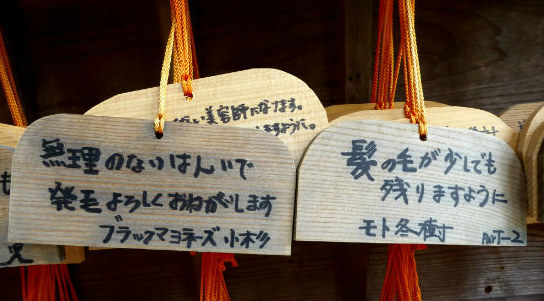 無理のないはんいで
発毛よろしくおねがいします
ブラックマヨネーズ 小杉
髪の毛が少しでも
残りますように
モト冬樹
い美容師になります。
ますように。